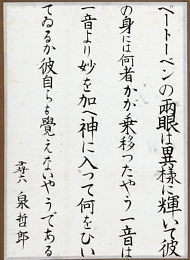 ベートーベンの両眼は異様に輝いて彼
の身には何者かが乗移つたやう一音は
一音より妙を加へ神に入って何をひい
てゐるか彼自らも覺えないやうである
尋六 泉哲郎